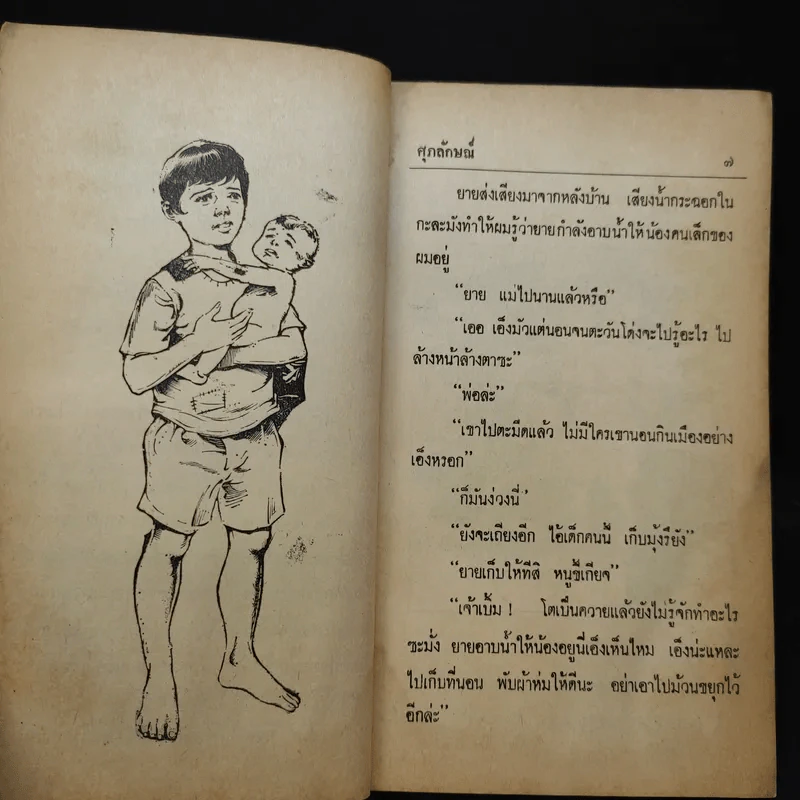 ศุภลักษณ์
๗
ยายส่งเสียงมาจากหลังบ้าน เสียงน้ำกระฉอกใน
กะละมังทำให้ผมรู้ว่ายายกำลังอาบน้ำให้น้องคนเล็กของ
ผมอยู่
“ยาย แม่ไปนานแล้วหรือ”
“เออ เอ็งมัวแต่นอนจนตะวันโด่งจะไปรู้อะไร ไป
ล้างหน้าล้างตาซะ”
“พ่อล่ะ”
“เขาไปตะมืดแล้ว ไม่มีใครเขานอนกินเมืองอย่าง
เอ็งหรอก”
“ก็มันง่วงนี่’
“ยังจะเถียงอีก ไอ้เด็กคนนี้ เก็บมุ้งรึยัง”
“ยายเก็บให้ทีสิ หนูขี้เกียจ”
“เจ้าเบิ้ม ! โตเป็นควายแล้วยังไม่รู้จักทำอะไร
ซะมั่ง ยายอาบน้ำให้น้องอยู่นี่เอ็งเห็นไหม เอ็งน่ะแหละ
ไปเก็บที่นอน พับผ้าห่มให้ดีนะ อย่าเอาไปม้วนขยุกไว้
อีกล่ะ”